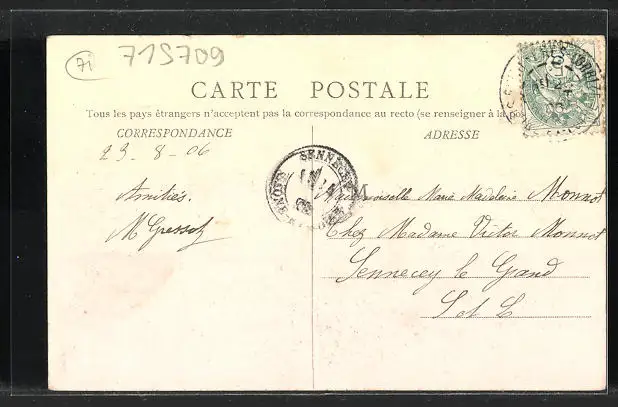 71
71S709
CARTE POSTALE
Tous les pays étrangers n'acceptent pas la correspondance au recto (se renseigner à la pos
CORRESPONDANCE
ADRESSE
23-8-06
Amitiés.
M Gressot
SENNECEY
Mademoiselle Marie Madeleine Monnot
Chez Madame Victor Monnot
Sennecey le Grand
S et L